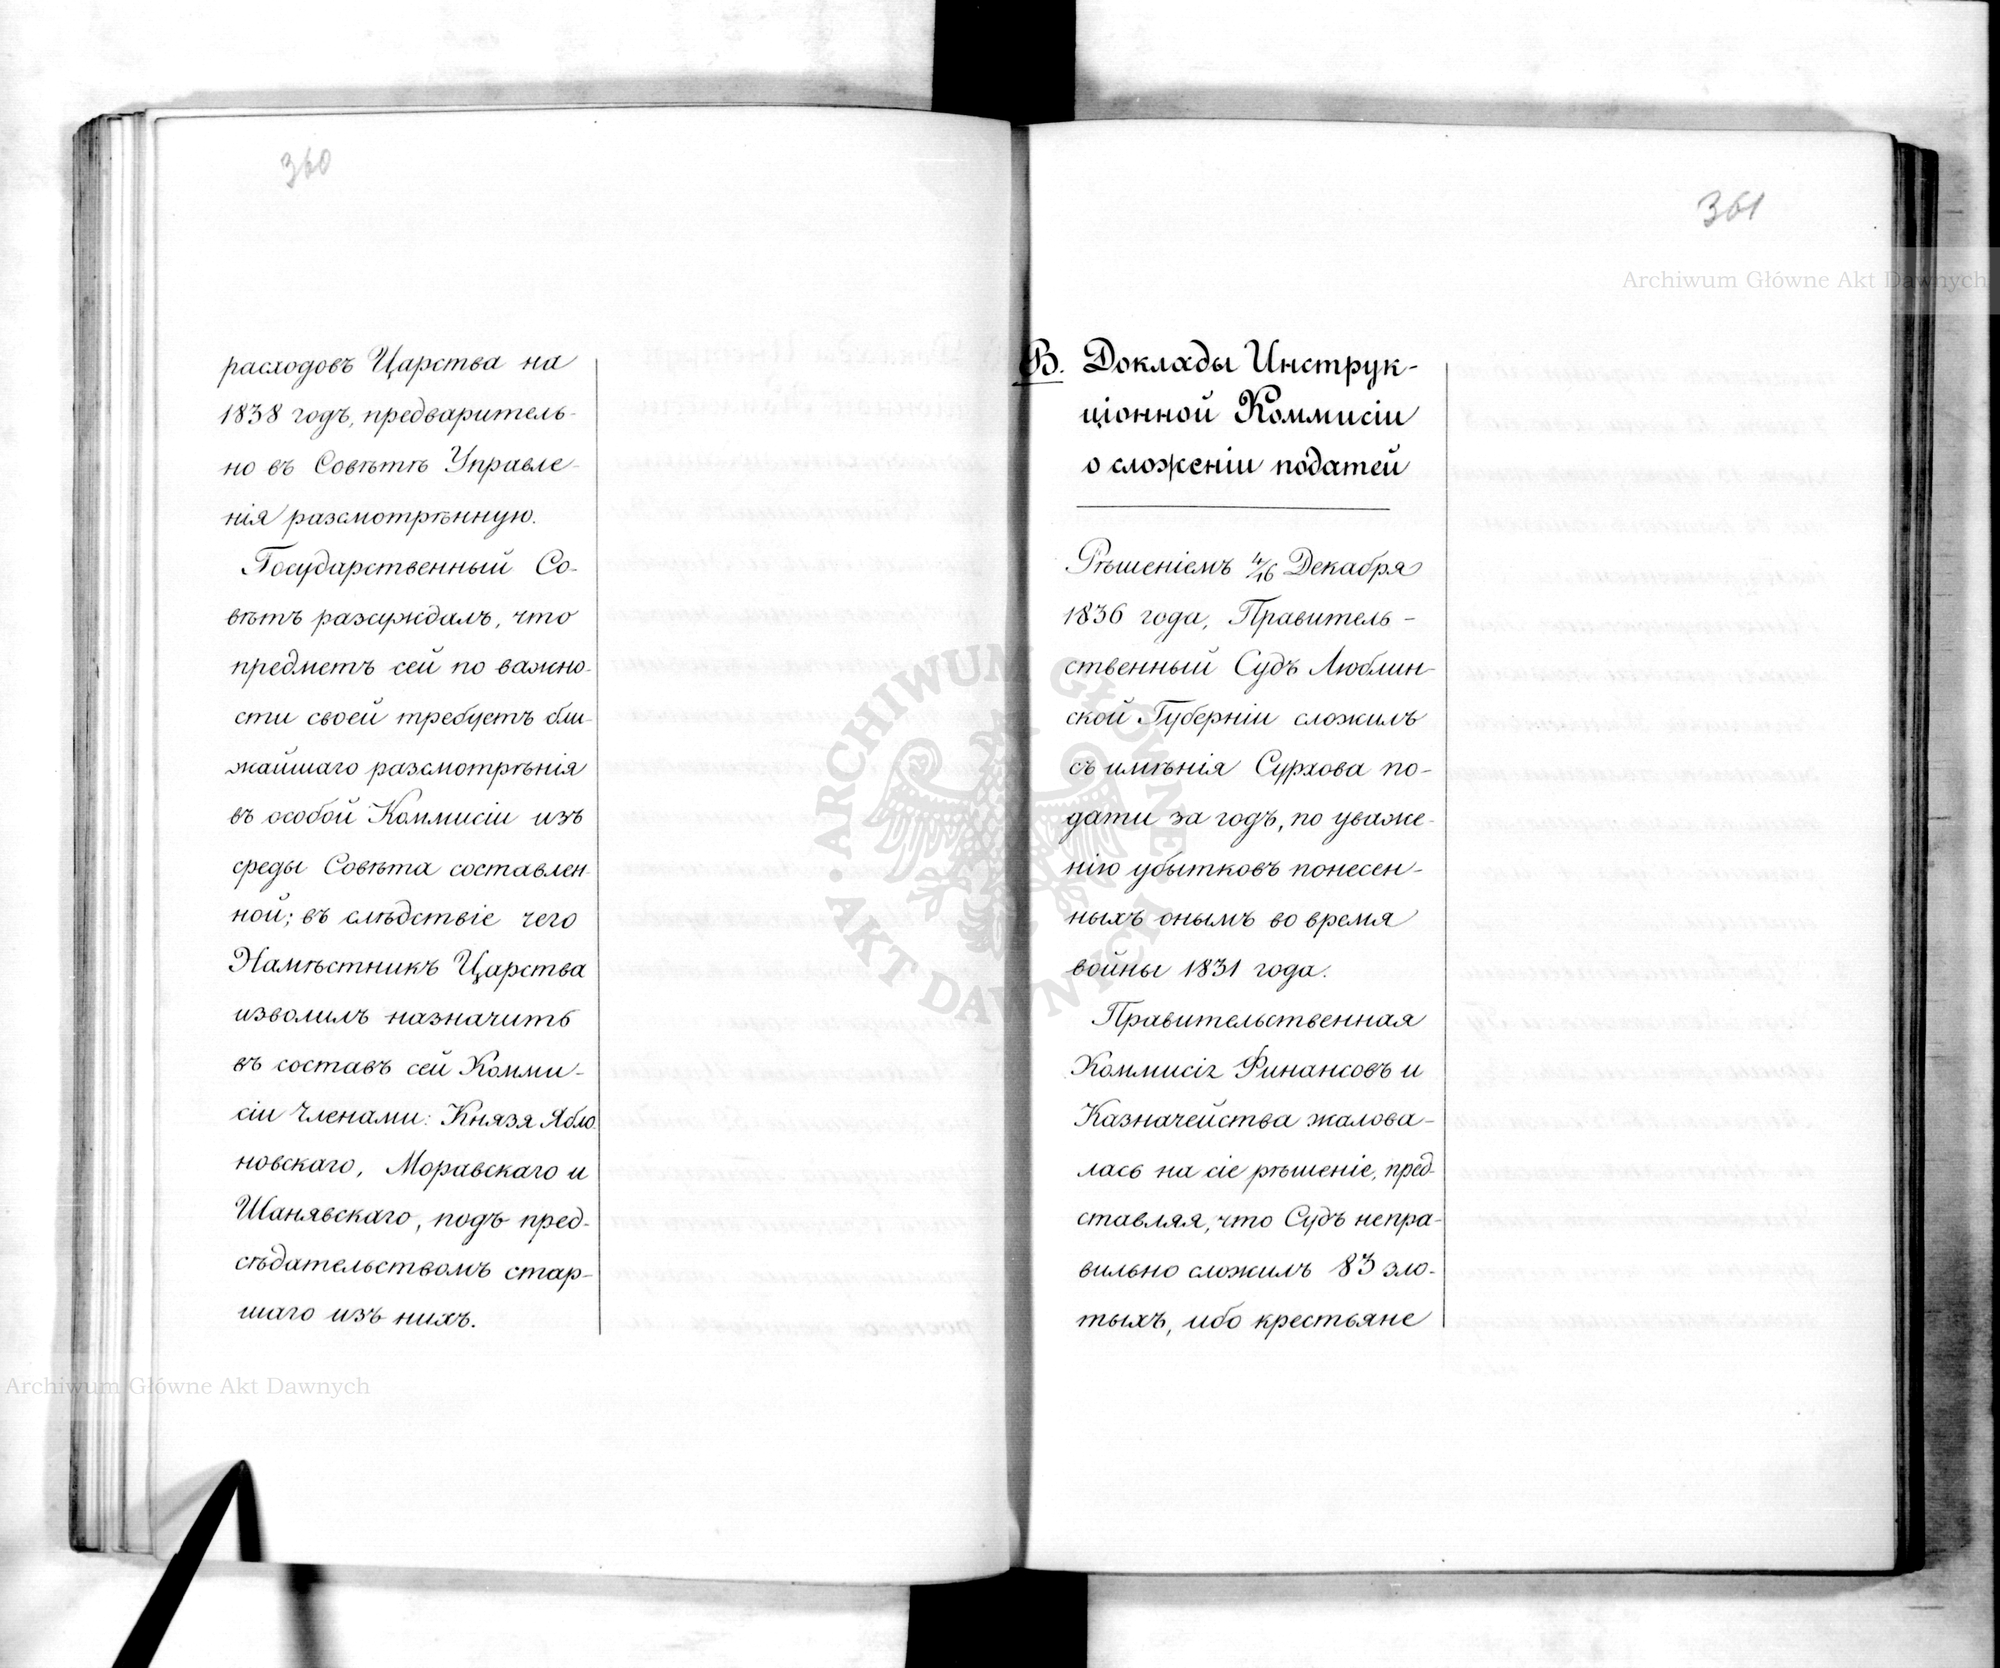 360
расходовъ Царства на
1838 годъ, предваритель-
но въ Совѣтѣ Управле-
нія разсмотрѣнную.
Государственный Со-
вѣтъ разсуждалъ, что
предметъ сей по важно-
сти своей требуетъ бли-
жайшаго разсмотрѣнія
въ особой Коммисіи изъ
среды Совѣта составлен-
ной; въ слѣдствіе чего
Намѣстникъ Царства
изволилъ назначить
въ составъ сей Комми-
сіи Членами: Князя Ябло
новскаго, Моравскаго и
Шанявскаго, подъ пред-
сѣдательствомъ стар-
шаго изъ нихъ.
Archiwum Główne Akt Dawnych
361
Archiwum Główne Akt Dawnych
В. Доклады Инструк-
ціонной Коммисіи
о сложеніи податей
Рѣшеніемъ 4/16 Декабря
1836 года, Правитель-
ственный Судъ Люблин-
ской Губерніи сложилъ
съ имѣнія Сурхова по-
дати за годъ, по уваже-
нію убытковъ понесен-
ныхъ онымъ во время
войны 1831 года.
Правительственная
Коммисія Финансовъ и
Казначейства жалова-
лась на сіе рѣшеніе, пред-
ставляя, что Судъ непра-
вильно сложилъ 83 зло-
тыхъ, ибо крестьяне
ARCHIWUM GŁÓWNE
AKT DAWNYCH